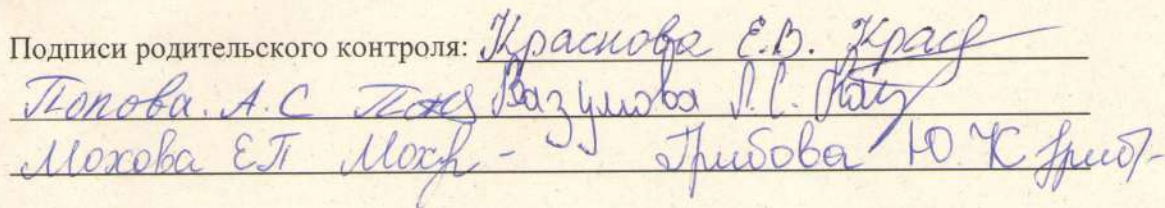 Подписи родительского контроля: Краснова Е.В. Крас
Попова. А.С Поп Разумова Л.С.
Мохова ЕП Мох - Грибова Ю.К Гриб -